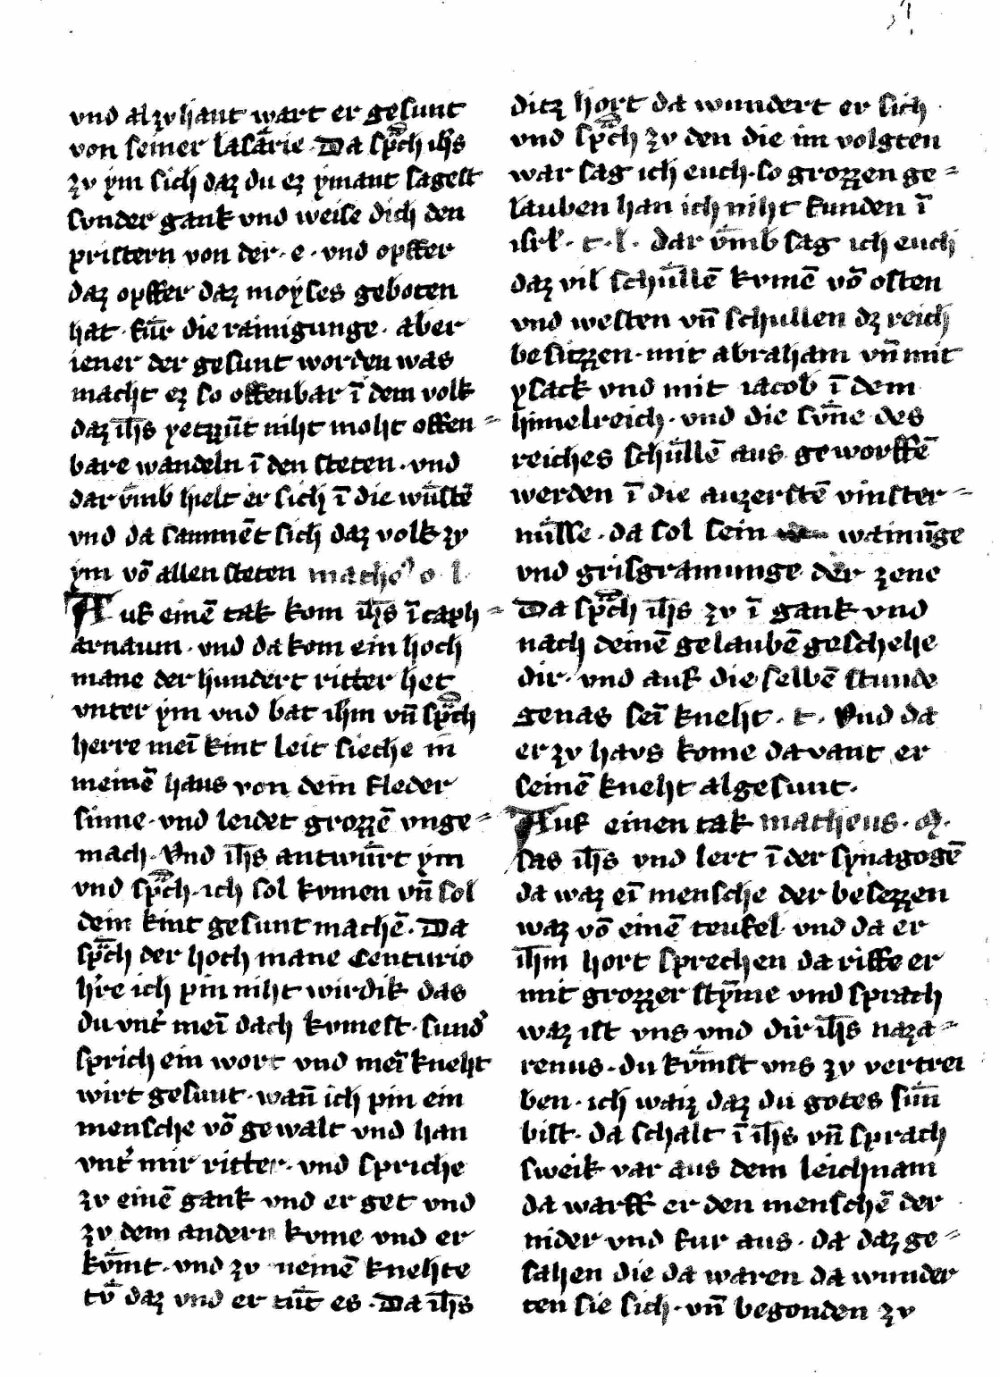 vnd alzvhant wart er gesunt
von seiner lasarie. Da sp̄ch ih̄s
zv ym sich daz du ez ymant sagest
sunder gank vnd weise dich den
pristern von der · e · vnd opffer
daz opffer daz moyses geboten
hat · fur die rainigunge · aber
iener der gesunt worden was
macht ez so offenbar ī dem volk
daz ih̄s yetzūt niht moht offen-
bare wandeln ī den steten · vnd
dar vm̄b hielt er sich ī die wustē
vnd da sammēt sich daz volk zv
ym vō allen steten
Auf einē tak kom ih̄s ī caph-
arnaum · vnd da kom ein hoch
mane der hundert ritter het
vnter ym vnd bat ihm vn̄ sp̄ch
herre meī kint leit sieche in
meinē haus von dem fleder
sinne · vnd leidet grozzē vnge-
mach · Vnd ih̄s antwurt ym
vnd sp̄ch · ich sol kvmen vn̄ sol
dein kint gesunt machē · Da
sp̄ch der hoch mane Centurio
hr̄e ich pin niht wirdik das
du vnt̄ meī dach kvmest · sund̄
sprich ein wort vnd meī kneht
wirt gesunt · wan̄ ich pin ein
mensche vō gewalt vnd han
vnt̄ mir ritter · vnd spriche
zv einē gank vnd er get vnd
zv dem andern kvme vnd er
kvm̄t · vnd zv meinē knehte
tv daz vnd er tut es · Da ih̄s
ditz hort da wundert er sich
vnd sp̄ch zv den die im volgten
war sag ich euch · so grozzen ge-
lauben han ich niht funden ī
isrl̄ · t · l · dar vm̄b sag ich euch
daz vil schullē kvmē vō osten
vnd westen vn̄ schullen dz reich
besitzzen · mit abraham vn̄ mit
ysack vnd mit iacob ī dem
himelreich · vnd die svne des
reiches schullē aus geworffē
werden ī die auzerstē vinster-
nusse · da sol sein wainūge
vnd grisgramunge der zene
Da sp̄ch ih̄s zv ī gank vnd
nach deinē gelaubē geschehe
dir · vnd auf die selbē stunde
genas seī kneht · t · Vnd da
er zv havs kome da vant er
seinē kneht algesunt ·
Auf einen tak matheus ·
sas ih̄s vnd lert ī der synagogē
da waz eī mensche der besezzen
waz vō einē teufel · vnd da er
ih̄m hort sprechen da riffe er
mit grozzer stȳme vnd sprach
waz ist vns vnd dir ih̄s naza-
renus · du kvmst vns zv vertrei
ben · ich waiz daz du gotes sun
bist · da schalt ī ih̄s vn̄ sprach
sweik var aus dem leichnam
da warff er den menschē der
nider vnd fur aus · da daz ge-
sahen die da waren da wunder
ten sie sich · vn̄ begonden zv